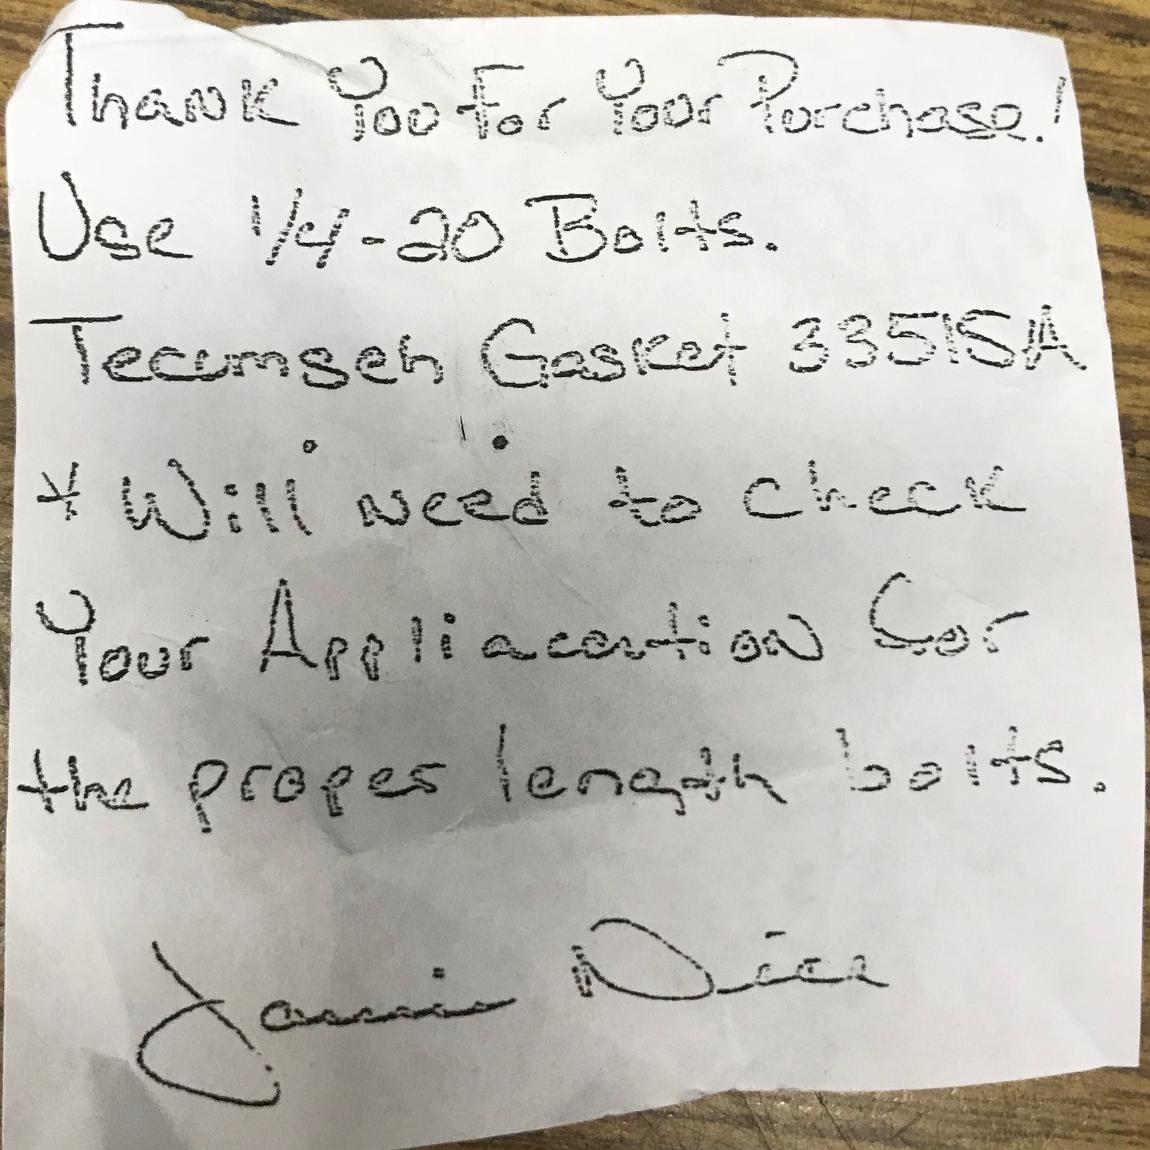 Thank You For Your Purchase!
Use 1/4-20 Bolts.
Tecumseh Gasket 33515A
* Will need to check
Your Appliacation for
the proper length bolts.
Jamie